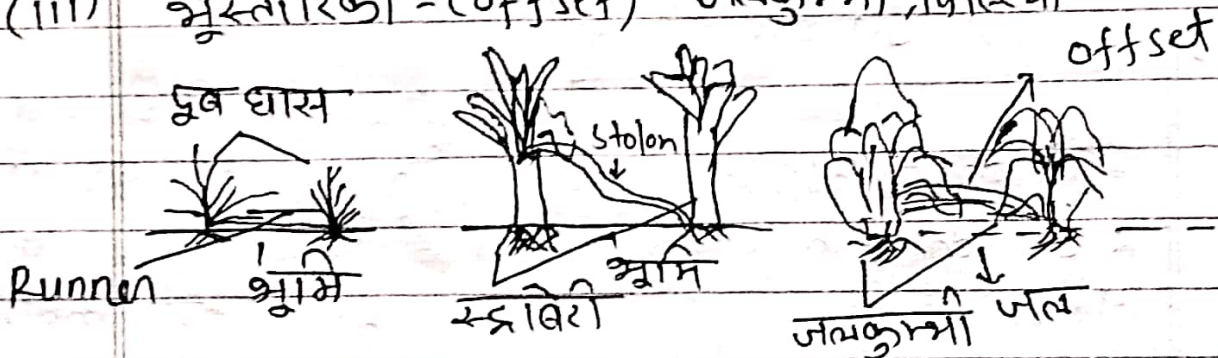 (iii) भूस्तारिका - (offset) जलकुम्भी,
offset
दूब घास
stolon
Runner भूमि
भूमि
स्ट्रोबेरी
जलकुम्भी जल